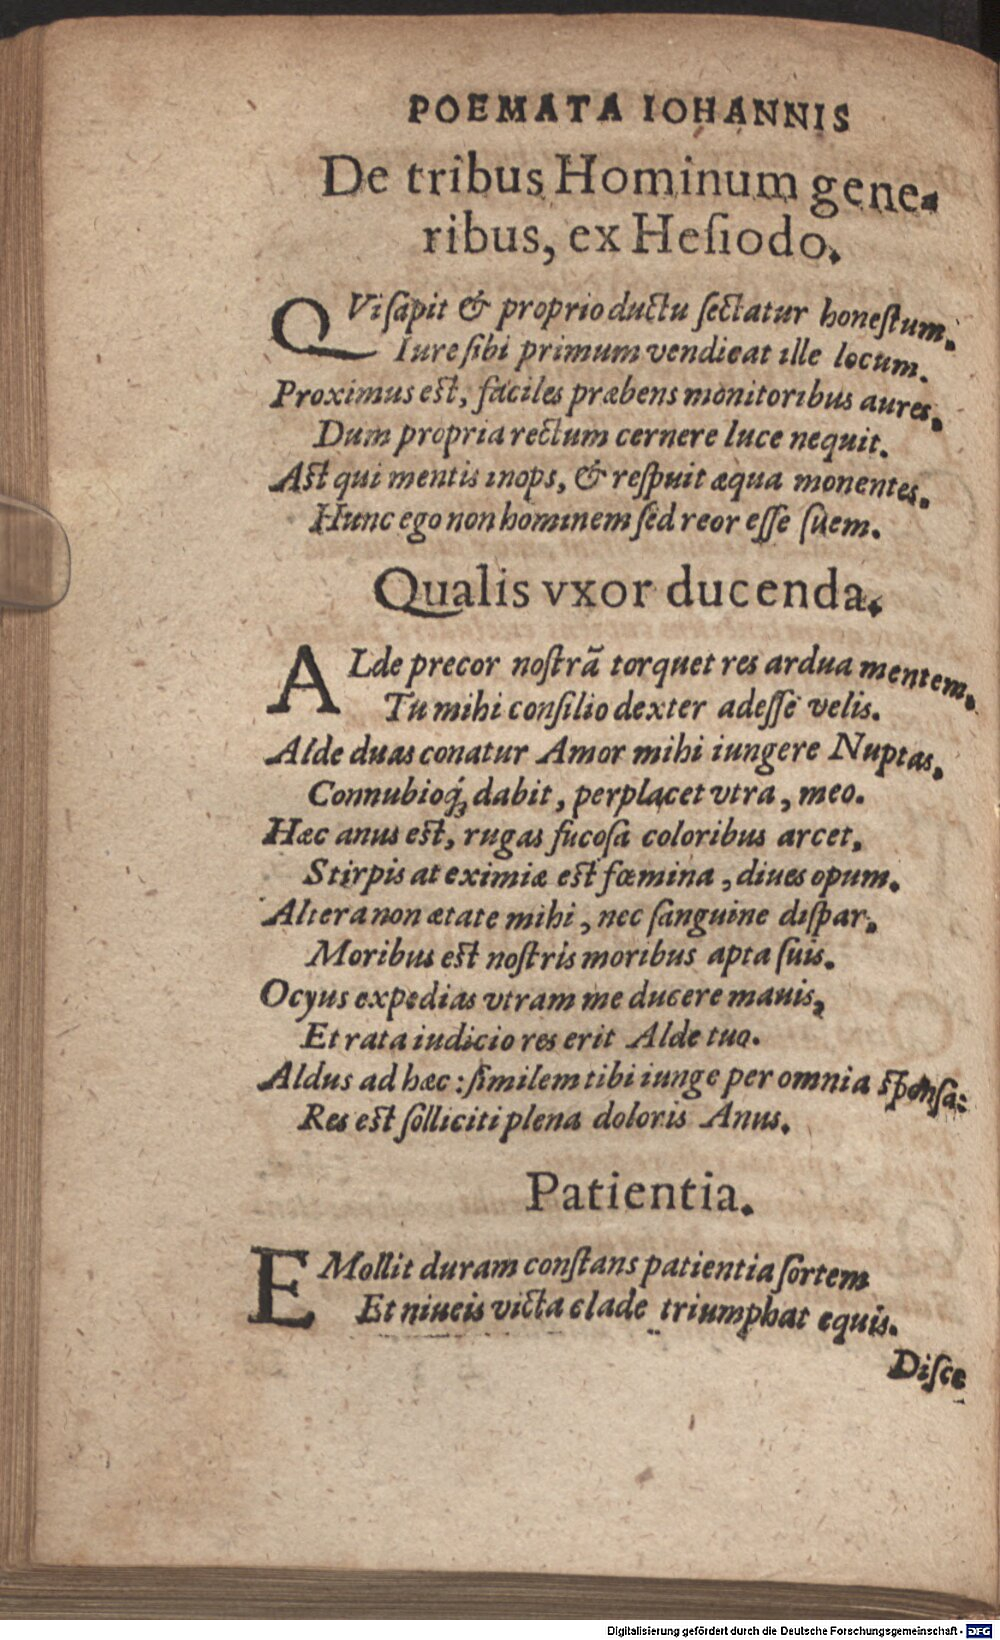 POEMATA IOHANNIS
De tribus Hominum gene-
ribus, ex Heſiodo.
QVi ſapit & proprio ductu ſectatur honeſtum.
Iure ſibi primum vendicat ille locum.
Proximus eſt, faciles præbens monitoribus aures.
Dum propria rectum cernere luce nequit.
Aſt qui mentis inops, & reſpuit æqua monentes.
Hunc ego non hominem ſed reor eſſe ſuem.
Qualis vxor ducenda.
ALde precor noſtrā torquet res ardua mentem.
Tu mihi conſilio dexter adeſſe velis.
Alde duas conatur Amor mihi iungere Nuptas.
Connubioq́ꝫ dabit, perplacet vtra, meo.
Hæc anus eſt, rugas fucoſa coloribus arcet,
Stirpis at eximiæ eſt fœmina, diues opum.
Altera non ætate mihi, nec ſanguine diſpar.
Moribus eſt noſtris moribus apta ſuis.
Ocyus expedias vtram me ducere mauis,
Et rata iudicio res erit Alde tuo.
Aldus ad hæc: ſimilem tibi iunge per omnia ſponſa:
Res eſt ſolliciti plena doloris Anus.
Patientia.
EMollit duram conſtans patientia ſortem
Et niueis victa clade triumphat equis.
Diſce
Digitalisierung gefördert durch die Deutsche Forschungsgemeinschaft - DFG